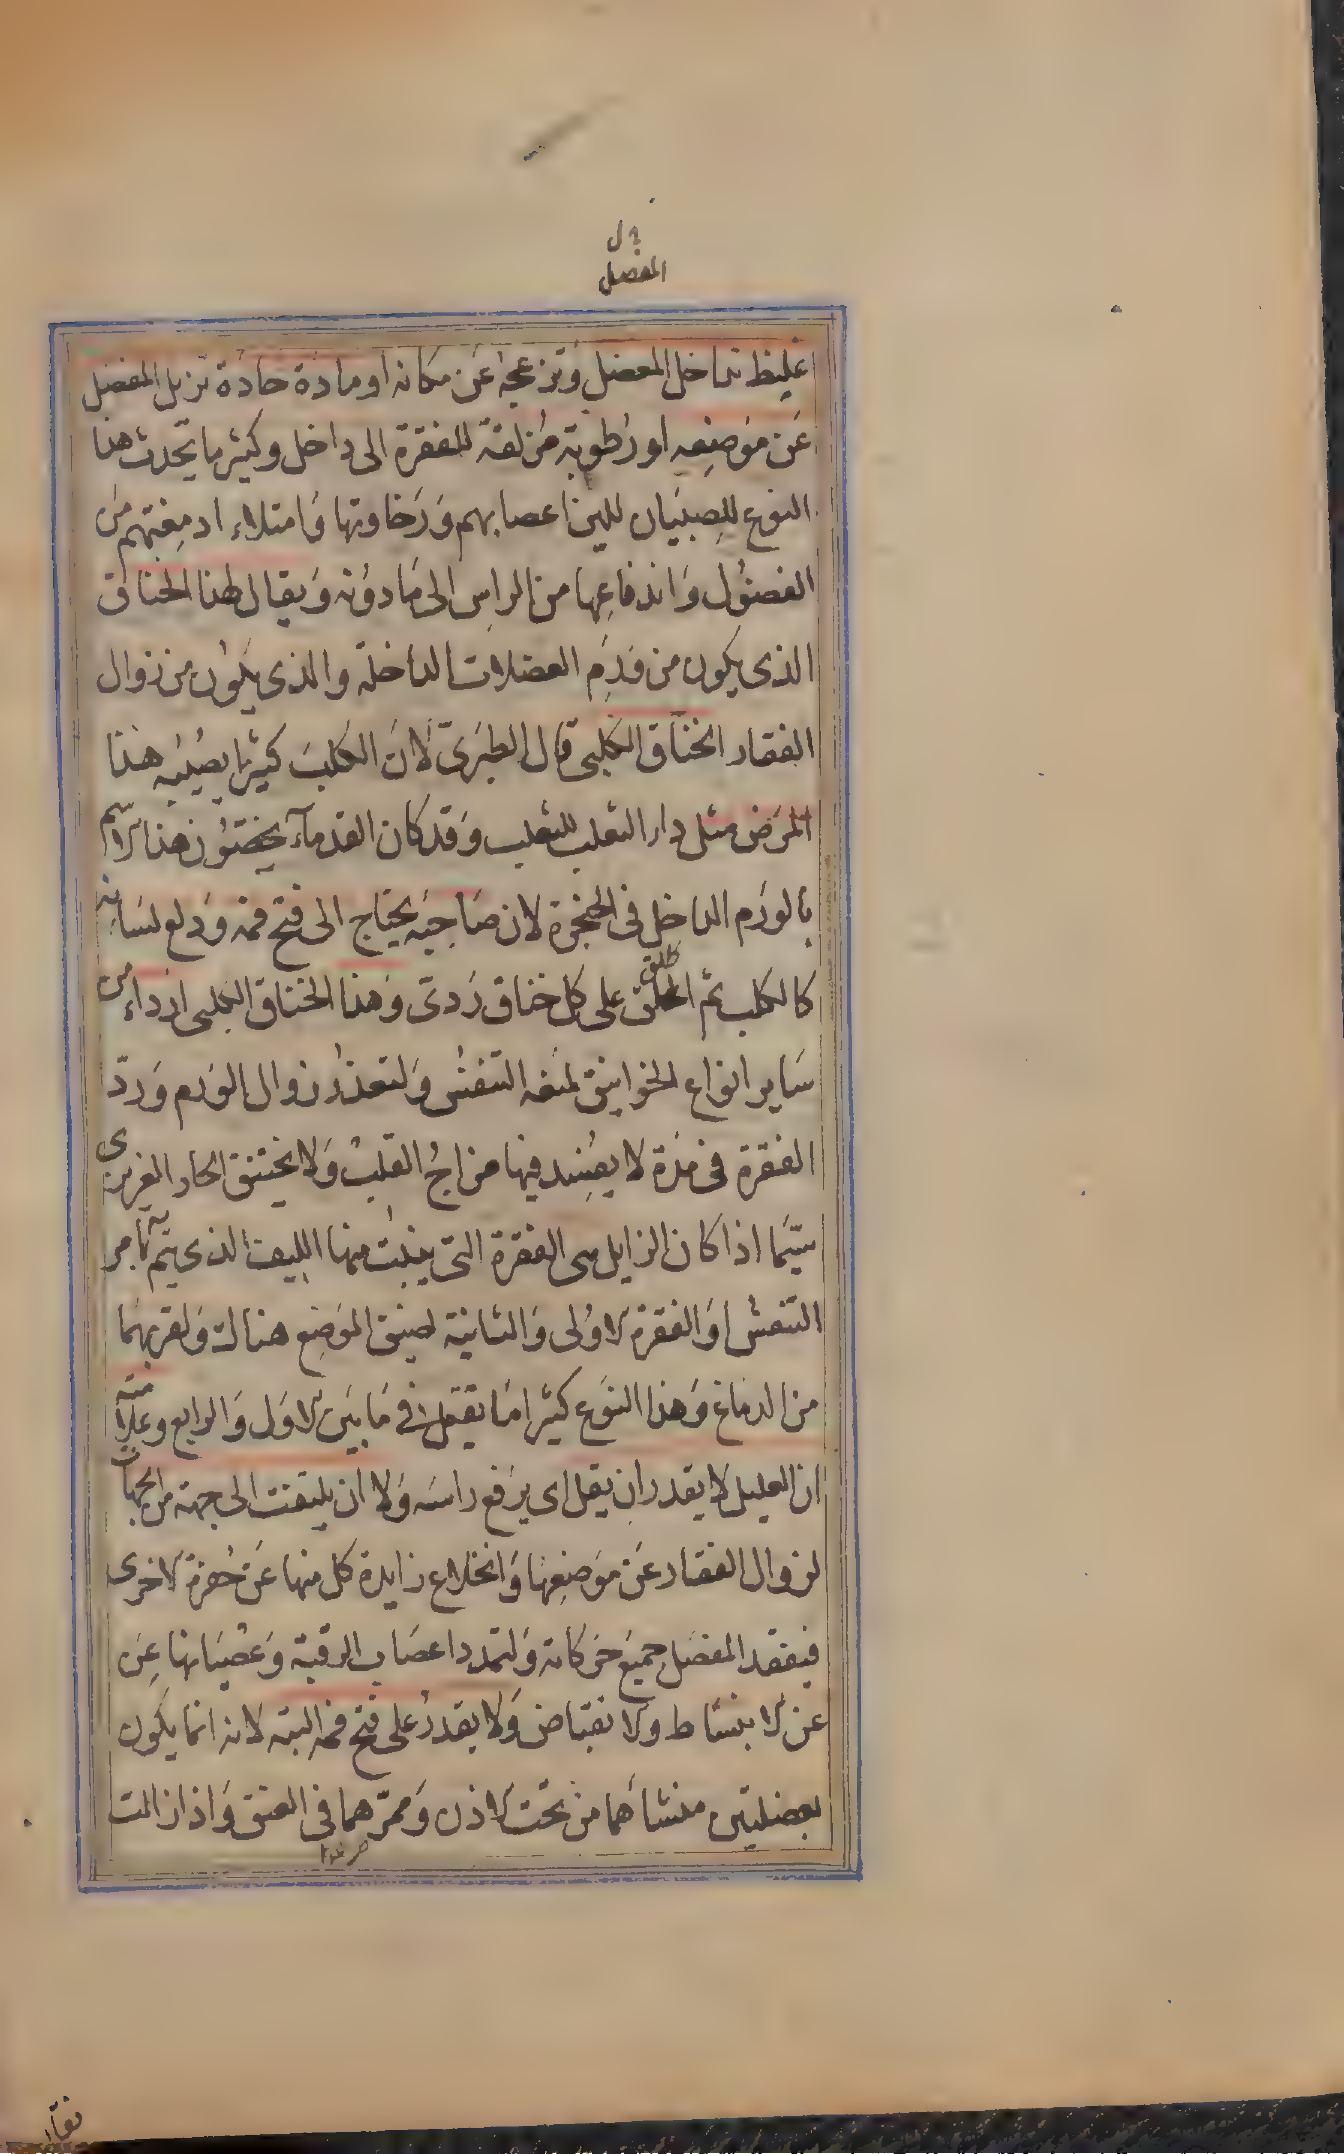 المفصل
غليظ تداخل المفصل وتزعجه عن مكانه او مادة حادة تزيل المفصل
عن موضعه او رطوبة مزلقة للفقرة الى داخل وكثيرا ما يحدث هذا
النوع للصبيان للين اعصابهم ورخاوتها وامتلاء ادمغتهم من
الفضول واندفاعها من الراس الى ما دونه ويقال لهذا الخناق
الذى يكون من ورم العضلات الداخلة والذى يكون من زوال
الفقار الخناق الكلبى قال الطبرى لان الكلب كثيرا يصيبه هذا
المرض مثل داء الثعلب للثعلب وقد كان القدماء يخصّون هذا الاسم
بالورم الداخل فى الحنجرة لان صاحبه يحتاج الى فتح فمه ودلع لسانه
كالكلب ثم اطلق على كل خناق ردى وهذا الخناق الكلبى ارداء من
ساير انواع الخوانيق لمنعه التنفس ولتعذر زوال الورم وردّ
الفقرة فى مدة لا يفسد فيها مزاج القلب ولا يختنق الحار الغريزى
سيّما اذا كان الزايل هى الفقرة التى ينبت منها الليف الذى يتم به امر
التنفس او الفقرة الاولى والثانية لضيق الموضع هناك ولقربهما
من الدماغ وهذا النوع كثيرا ما يقتل فى ما بين الاول والرابع وعلامته
ان العليل لا يقدر ان يقل اى يرفع راسه ولا ان يلتفت الى جهة من الجهات
لزوال الفقار عن موضعها وانخلاع زايدة كل منها عن حفرة الاخرى
فيفقد المفصل جميع حركاته ولتمدد اعصاب الرقبة وعصيانها عن
عن الانبساط والانقباض ولا يقدر على فتح فمه البتة لانه انما يكون
بعضلتين منشأهما من تحت الاذن وممرّهما فى العنق واذا زالت